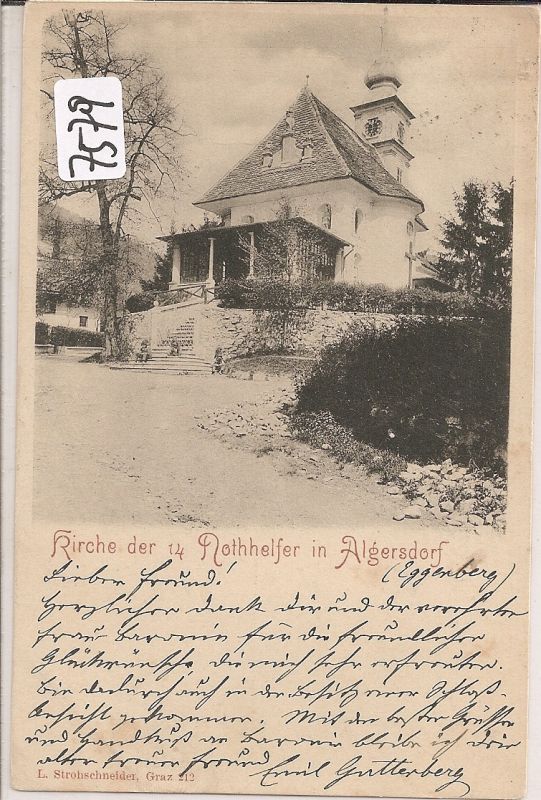 7579
Kirche der 14 Nothhelfer in Algersdorf
Lieber Freund! (Eggenberg)
Herzlichen Dank dir und der verehrten
Frau Baronin für die freundlichen
Glückwünsche, die mich sehr erfreuten.
Bin dadurch auch in den Besitz einer Schloß-
ansicht gekommen. Mit den besten Grüssen
und Handkuß an Baronin bleibe ich dein
alter treuer Freund Emil Gutterberg
L. Strohschneider, Graz 212